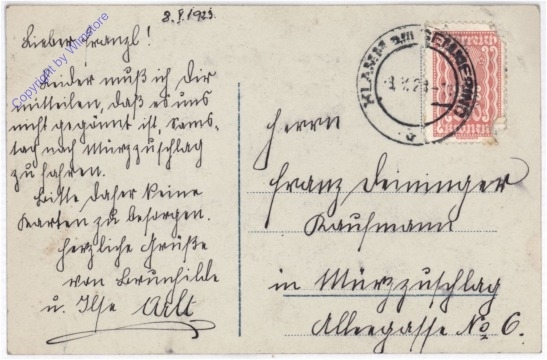 8.V.1923.
Lieber Franzl!
Leider muß ich Dir
mitteilen, daß es uns
nicht gegönnt ist, Sams-
tag nach Mürzzuschlag
zu fahren.
Bitte daher keine
Karten zu besorgen.
Herzliche Grüße
von Brunhilde
u. Ilse Arlt
Copyright by Winstore
KLAMM am SEMMERING
Herrn
Franz Deininger
Kaufmann
in Mürzzuschlag
Alleegasse No 6.